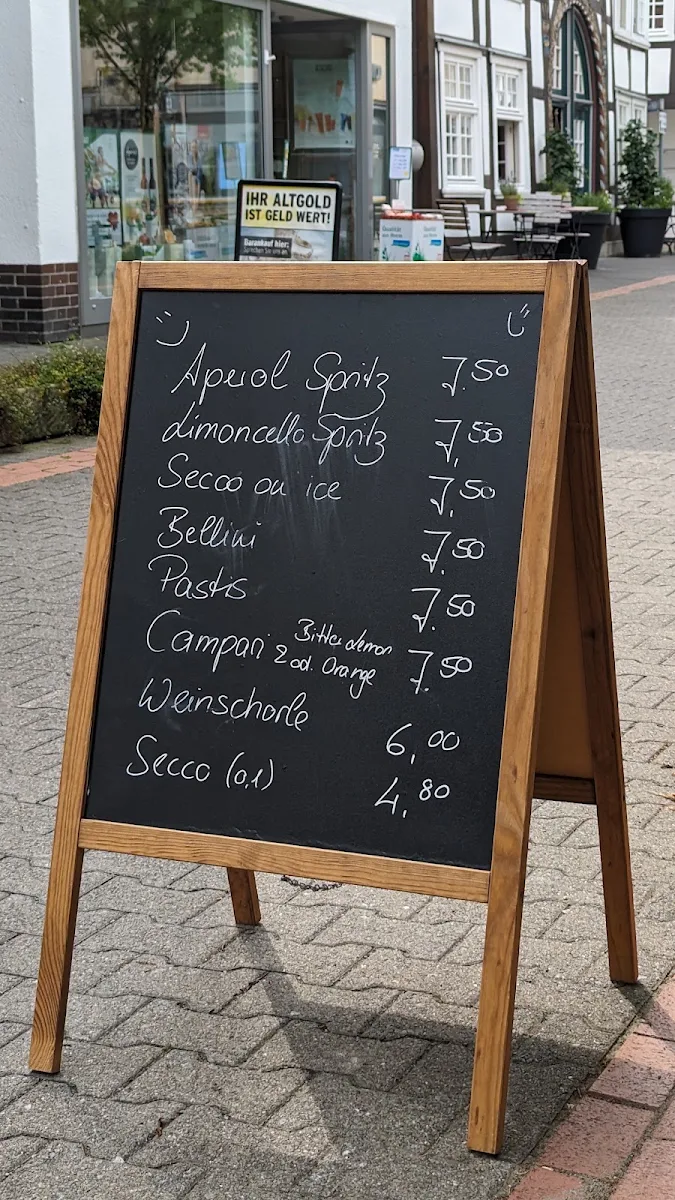 IHR ALTGOLD
IST GELD WERT!
Goldankauf hier:
Aperol Spritz 7.50
Limoncello Spritz 7,50
Secco on ice 7,50
Bellini 7.50
Pastis 7.50
Campari Bitter Lemon 7.50
& od. Orange
Weinschorle 6,00
Secco (0,1) 4,80